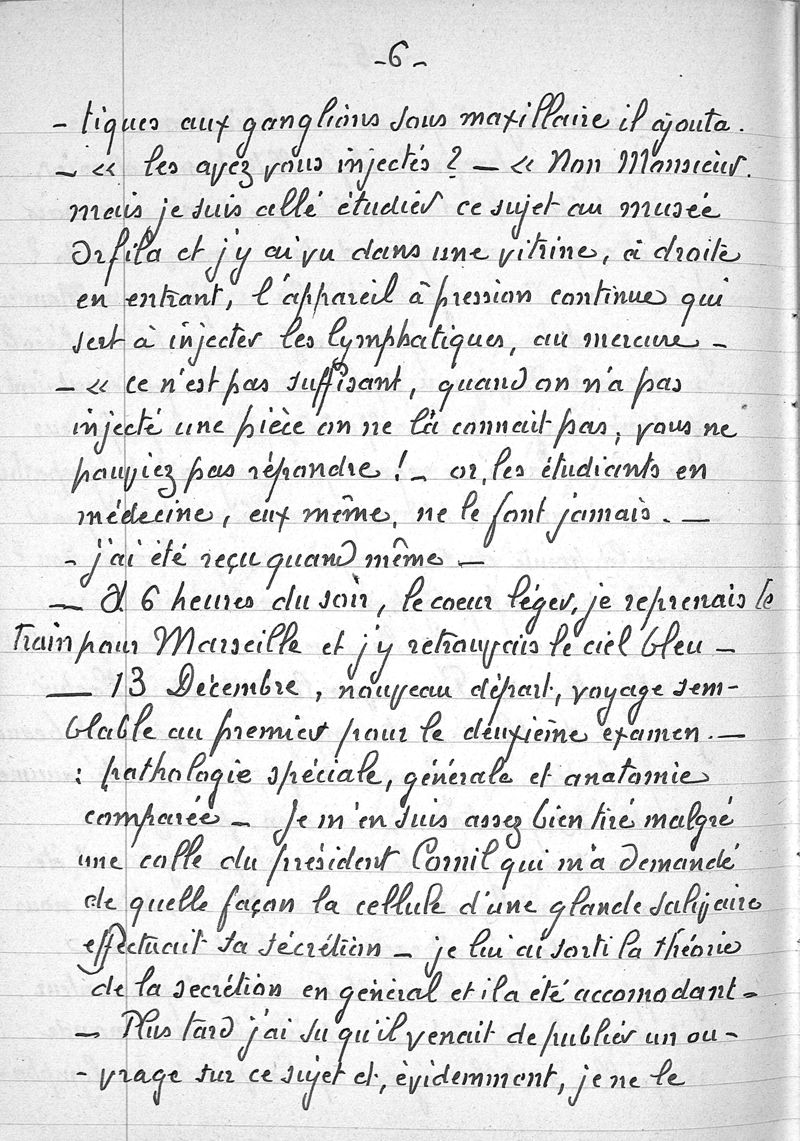 -6-
- tiques aux ganglions sous maxillaire il ajouta.
- « les avez vous injectés ? - « Non Monsieur.
mais je suis allé étudier ce sujet au musée
Orfila et j'y ai vu dans une vitrine, à droite
en entrant, l'appareil à pression continue qui
sert à injecter les lymphatiques, au mercure -
- « ce n'est pas suffisant, quand on n'a pas
injecté une pièce on ne la connait pas, vous ne
pouviez pas répondre ! - or, les étudiants en
médecine, eux même, ne le font jamais. -
- j'ai été reçu quand même -
- A 6 heures du soir, le coeur léger, je reprenais le
train pour Marseille et j'y retrouvais le ciel bleu -
- 13 Décembre, nouveau départ, voyage sem-
blable au premier pour le deuxième examen. -
: pathologie spéciale, générale et anatomie
comparée - Je m'en suis assez bien tiré malgré
une colle du président Cornil qui m'a demandé
de quelle façon la cellule d'une glande salivaire
effectuait sa sécrétion - je lui ai sorti la théorie
de la secrétion en général et il a été accomodant -
- Plus tard j'ai su qu'il venait de publier un ou-
- vrage sur ce sujet et, évidemment, je ne le